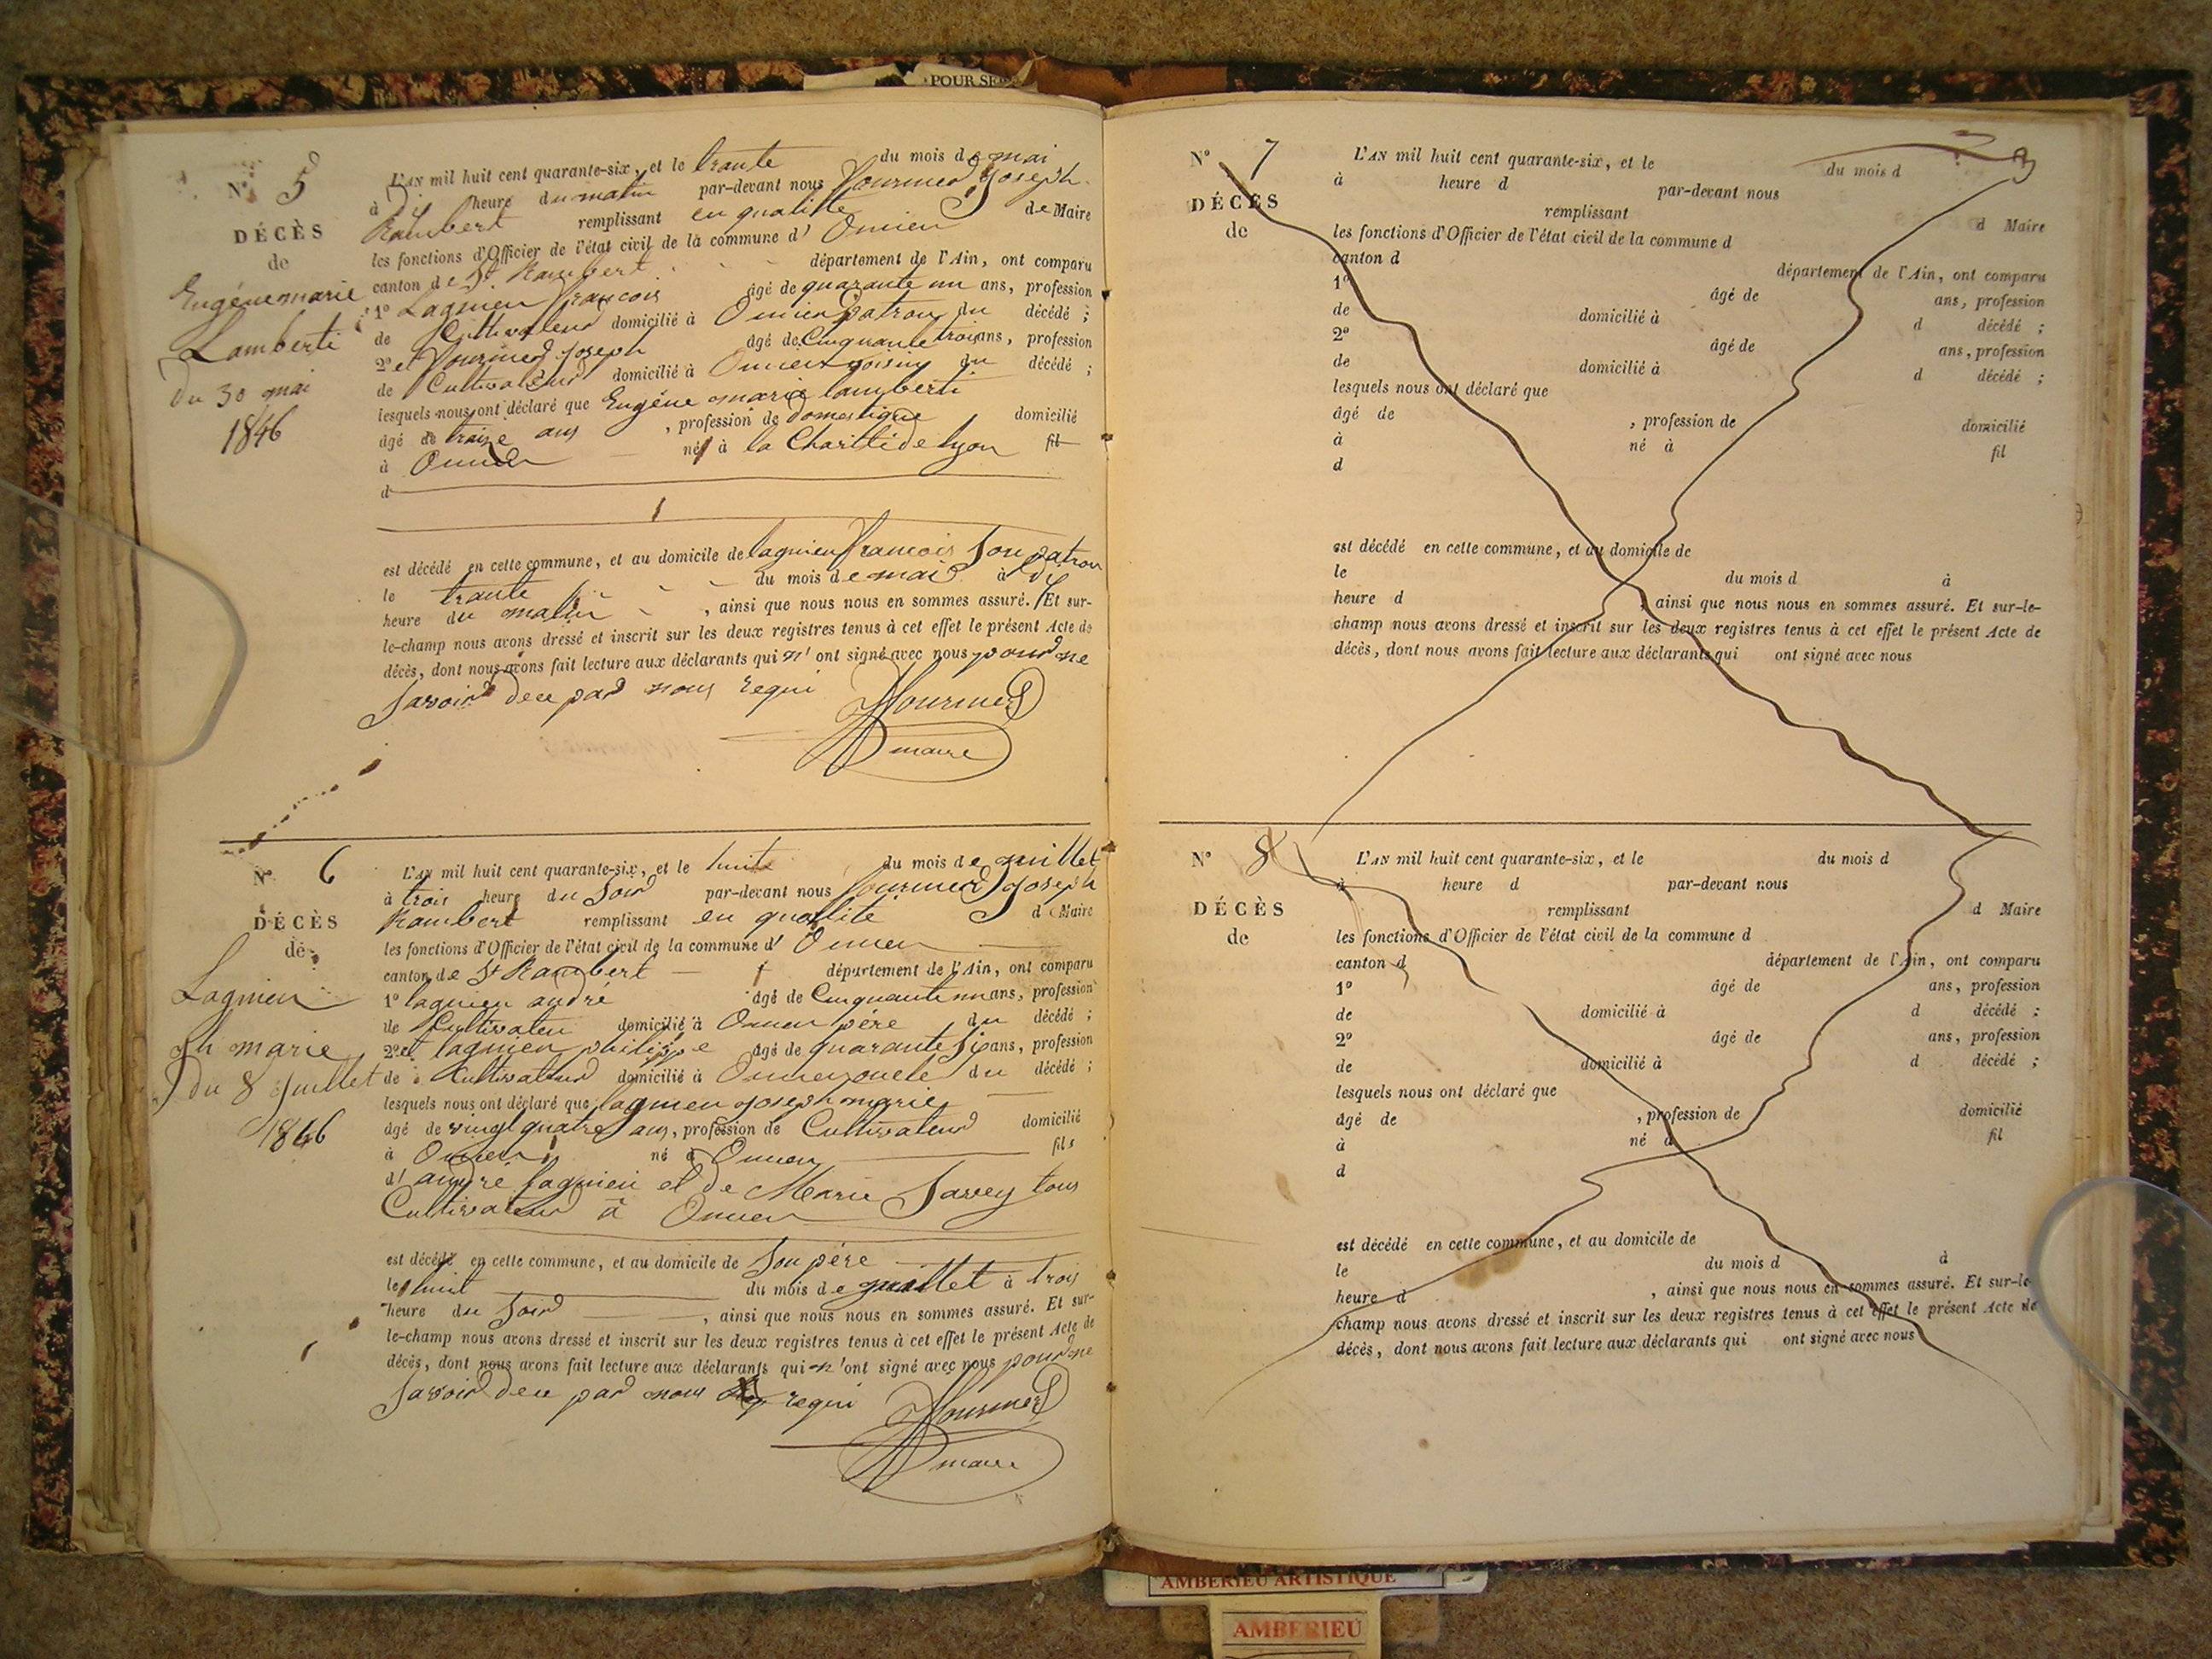 POUR SE
N° 5
DÉCÈS
de
Eugéne marie
Lamberti
du 30 mai
1846
L'AN mil huit cent quarante-six, et le trante du mois de mai
à Dix heure du matin par-devant nous Joseph
Rambert remplissant en qualitte de Maire
les fonctions d'Officier de l'état civil de la commune d' Oncien
canton de St Rambert département de l'Ain, ont comparu
1° Lagnieu francois âgé de quarante un ans, profession
de Cultivateur domicilié à Oncien patron du décédé ;
2° et Joseph âgé de Cinquante trois ans, profession
de Cultivateur domicilié à Oncien voisin du décédé ;
lesquels nous ont déclaré que Eugéne marie lamberti
âgé de traize ans , profession de Domestique domicilié
à Oncien né à la Charitté de lyon fil
d
est décédé en cette commune, et au domicile de lagnieu francois Son patron
le trante du mois de mai à Dix
heure du matin , ainsi que nous nous en sommes assuré. Et sur-
le-champ nous avons dressé et inscrit sur les deux registres tenus à cet effet le présent Acte de
décès, dont nous avons fait lecture aux déclarants qui n' ont signé avec nous pour ne
Savoir de ce par nous requi
maire
N° 6
DÉCÈS
de
Lagnieu
Jh marie
du 8 Juillet
1846
L'AN mil huit cent quarante-six, et le huite du mois de juillet
à trois heure du Soir par-devant nous Joseph
Rambert remplissant en quallité d Maire
les fonctions d'Officier de l'état civil de la commune d' Oncien
canton de St Rambert département de l'Ain, ont comparu
1° lagnieu andré âgé de Cinquante un ans, profession
de Cultivateu domicilié à Oncien pére du décédé ;
2° et lagnieu philippe âgé de quarante Six ans, profession
de Cultivateur domicilié à Oncien oncle du décédé ;
lesquels nous ont déclaré que lagnieu joseph marie
âgé de vingt quatre ans, profession de Cultivateur domicilié
à Oncien né à Oncien fils
d' andré lagnieu et de Marie Savey tous
Cultivateur à Oncien
est décédé en cette commune, et au domicile de Son pére
le huit du mois de juillet à trois
heure du Soir , ainsi que nous nous en sommes assuré. Et sur-
le-champ nous avons dressé et inscrit sur les deux registres tenus à cet effet le présent Acte de
décès, dont nous avons fait lecture aux déclarants qui n' ont signé avec nous pour ne
Savoir de ce par nous requi
maire
N° 7
DÉCÈS
de
L'AN mil huit cent quarante-six, et le du mois d
à heure d par-devant nous
remplissant d Maire
les fonctions d'Officier de l'état civil de la commune d
canton d département de l'Ain, ont comparu
1° âgé de ans, profession
de domicilié à d décédé ;
2° âgé de ans, profession
de domicilié à d décédé ;
lesquels nous ont déclaré que
âgé de , profession de domicilié
à né à fil
d
est décédé en cette commune, et au domicile de
le du mois d à
heure d , ainsi que nous nous en sommes assuré. Et sur-le-
champ nous avons dressé et inscrit sur les deux registres tenus à cet effet le présent Acte de
décès, dont nous avons fait lecture aux déclarants qui ont signé avec nous
N° 8
DÉCÈS
de
L'AN mil huit cent quarante-six, et le du mois d
à heure d par-devant nous
remplissant d Maire
les fonctions d'Officier de l'état civil de la commune d
canton d département de l'Ain, ont comparu
1° âgé de ans, profession
de domicilié à d décédé ;
2° âgé de ans, profession
de domicilié à d décédé ;
lesquels nous ont déclaré que
âgé de , profession de domicilié
à né à fil
d
est décédé en cette commune, et au domicile de
le du mois d à
heure d , ainsi que nous nous en sommes assuré. Et sur-le-
champ nous avons dressé et inscrit sur les deux registres tenus à cet effet le présent Acte de
décès, dont nous avons fait lecture aux déclarants qui ont signé avec nous
AMBERIEU ARTISTIQUE
AMBERIEU